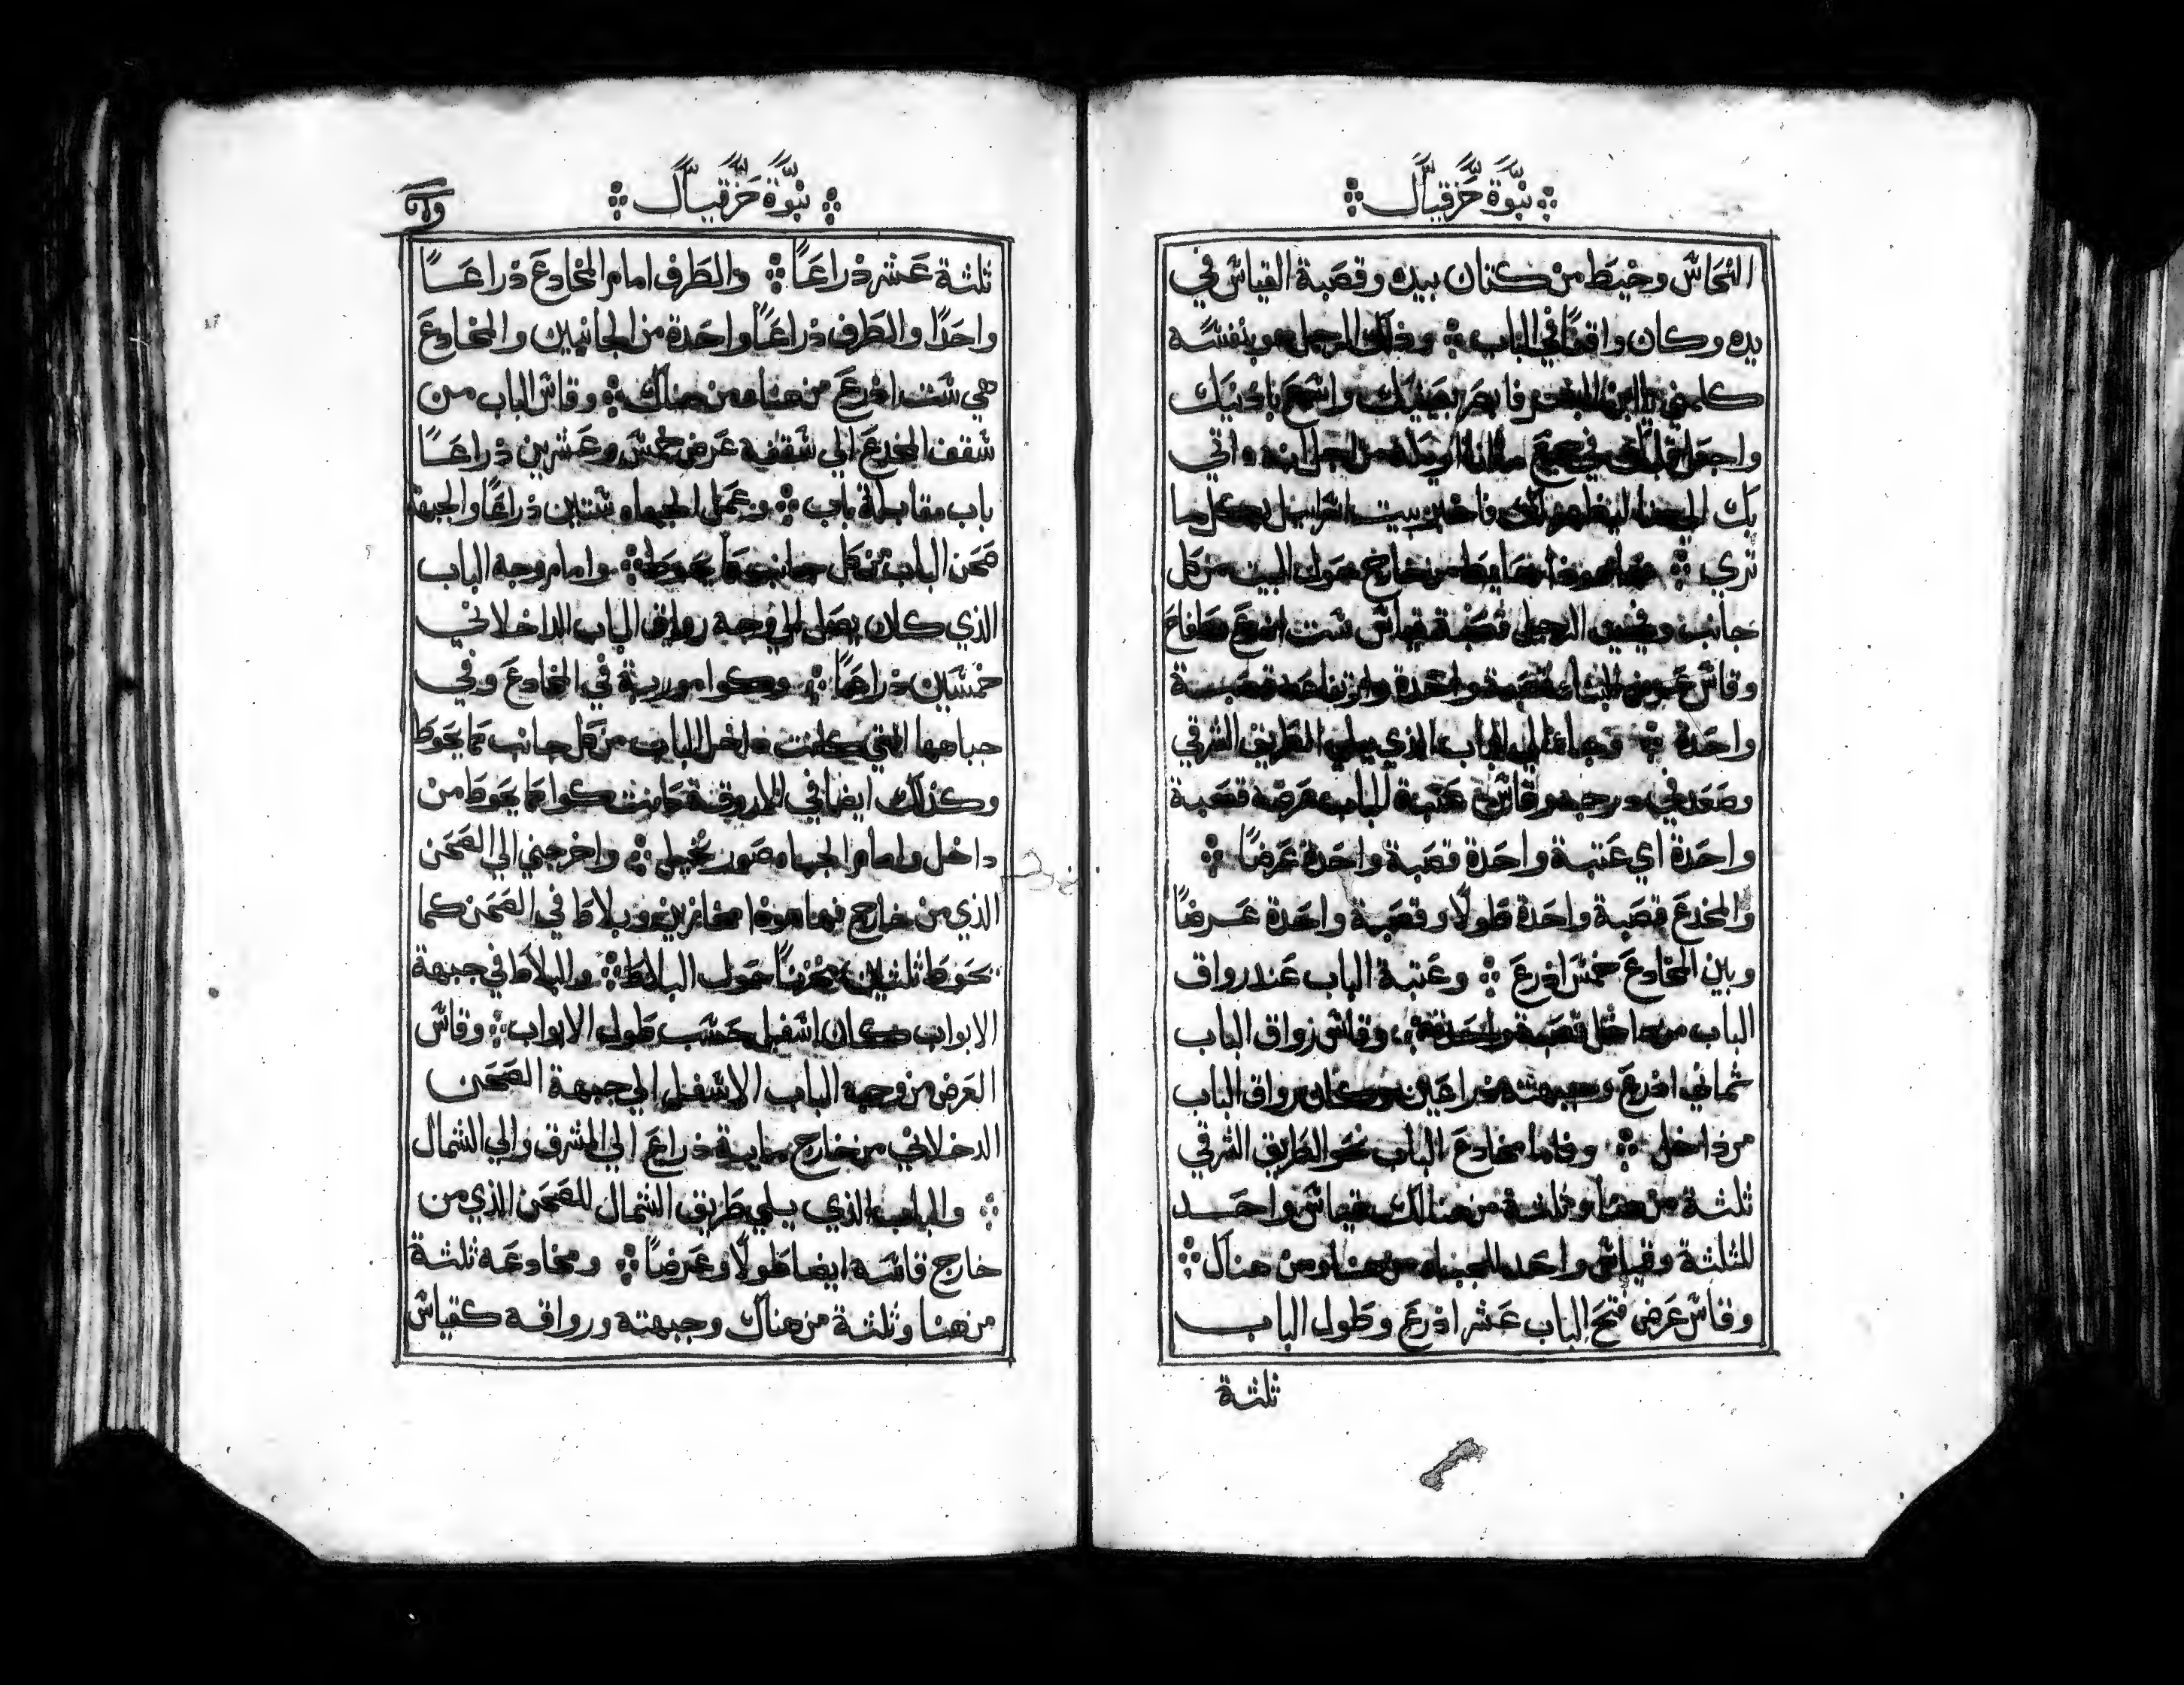 نبوّة حزقيال
النحاس وخيط من كتان بيده وقصبة القياس في
يده وكان واقفًا في الباب ⁘ وذلك الرجل هو بنفسه
كلمني يا ابن البشر فابصر بعينيك واسمع باذنيك
واجعل قلبك في جميع ما انا اريك من اجل انه اتي
بك الي هنا ليظهر لك فاخبر بيت اسرايل بكل ما
تري ⁘ حايط من خارج حول البيت من كل
جانب وفي يد الرجل قصبة قياس ست اذرع
وقاس عرض البناء قصبة واحدة وارتفاعه قصبة
واحدة ⁘ وجاء الي الباب الذي يلي الطريق الشرقي
وصعد في درجه وقاس عتبة الباب عرضه قصبة
واحدة اي عتبة واحدة قصبة واحدة عرضًا ⁘
والمخدع قصبة واحدة طولًا وقصبة واحدة عرضًا
وبين المخادع خمس اذرع ⁘ وعتبة الباب عند رواق
الباب من داخل قصبة واحدة ⁘ وقاس رواق الباب
ثماني اذرع وجبهته ذراعين وكان رواق الباب
من داخل ⁘ وفاما مخادع الباب نحو الطريق الشرقي
ثلثة من هنا وثلثة من هنالك قياس واحد
للثلثة وقياس واحد للجباه من هنا ومن هناك ⁘
وقاس عرض فتح الباب عشر اذرع وطول الباب
ثلثة
نبوّة حزقيال
ثلثة عشر ذراعًا ⁘ والطرف امام المخادع ذراعًا
واحدًا والطرف ذراعًا واحدة من الجانبين والمخادع
هي ست اذرع من هنا ومن هناك ⁘ وقاس الباب من
سقف المخدع الي سقفه عرض خمس وعشرين ذراعًا
باب مقابلة باب ⁘ وعمل الجباه ستين ذراعًا والجبهة
صحن الباب من كل جانب ما يحوط ⁘ وامام وجه الباب
الذي كان يصل الي وجه رواق الباب الداخلاني
خمسين ذراعًا ⁘ وكوا موربة في المخادع وفي
جباهها التي كانت داخل الباب من كل جانب مما يحوط
وكذلك ايضا في الاروقة كانت كوا مما يحوط من
داخل وامام الجباه صور نخيل ⁘ واخرجني الي الصحن
الذي من خارج فهاهوذا مخازين وبلاط في الصحن كما
يحوط ثلثين مخزنًا حول البلاط ⁘ والبلاط في جبهة
الابواب كان اسفل حسب طول الابواب ⁘ وقاس
العرض من وجه الباب الاسفل الي جبهة الصحن
الدخلاني من خارج مايية ذراع الي المشرق والي الشمال
⁘ والباب الذي يلي طريق الشمال للصحن الذي من
خارج قاسه ايضا طولًا وعرضًا ⁘ ومخادعه ثلثة
من هنا وثلثة من هناك وجبهته ورواقه كقياس